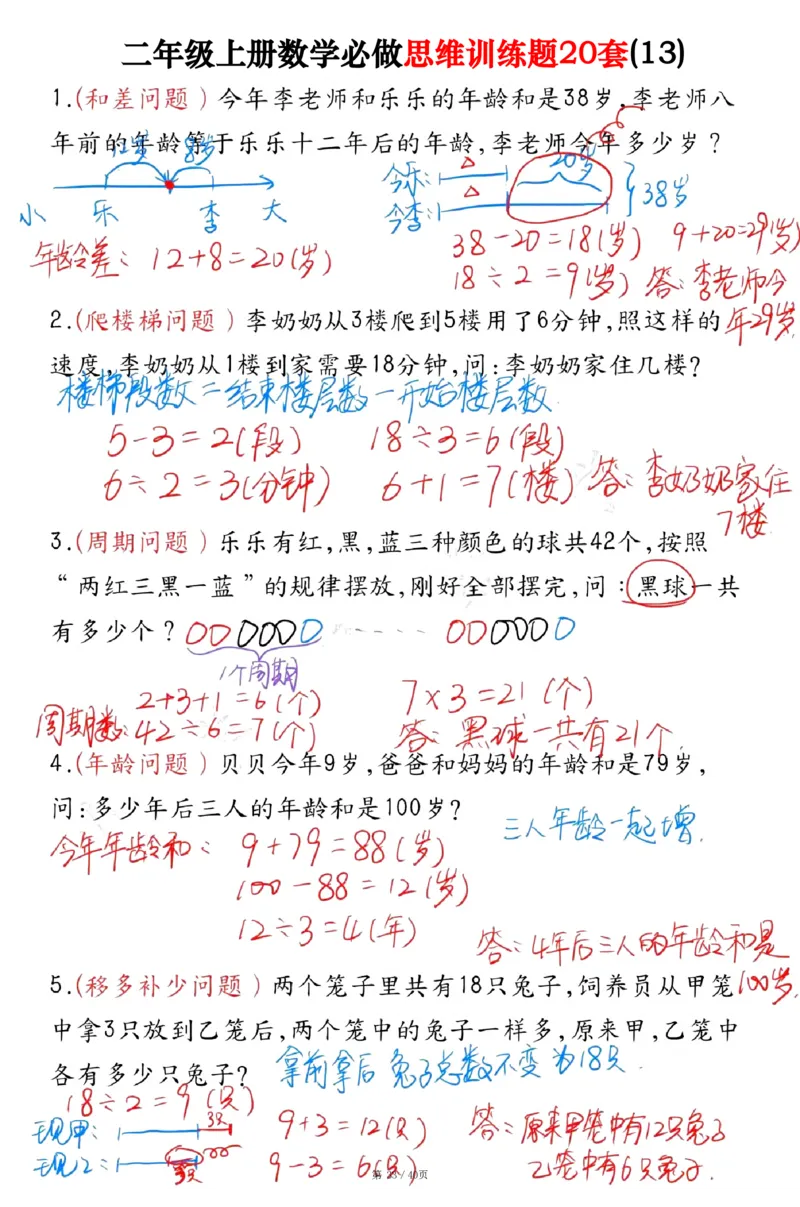 二年级上册数学必做思维训练题20套(13)
1.(和差问题)今年李老师和乐乐的年龄和是38岁,李老师八
年前的年龄等于乐乐十二年后的年龄,李老师今年多少岁?
12岁 8岁
小 乐 李 大
今乐:
今李:
20岁
38岁
年龄差: 12+8=20(岁)
38-20=18(岁) 9+20=29(岁)
18÷2=9(岁) 答:李老师今
年29岁
2.(爬楼梯问题)李奶奶从3楼爬到5楼用了6分钟,照这样的
速度,李奶奶从1楼到家需要18分钟,问:李奶奶家住几楼?
楼梯段数=结束楼层数-开始楼层数
5-3=2(段) 18÷3=6(段)
6÷2=3(分钟) 6+1=7(楼) 答:李奶奶家住
7楼
3.(周期问题)乐乐有红,黑,蓝三种颜色的球共42个,按照
“两红三黑一蓝”的规律摆放,刚好全部摆完,问:黑球一共
有多少个?
1个周期
2+3+1=6(个) 7×3=21(个)
周期数:42÷6=7(个) 答:黑球一共有21个.
4.(年龄问题)贝贝今年9岁,爸爸和妈妈的年龄和是79岁,
问:多少年后三人的年龄和是100岁?
三人年龄一起增.
今年年龄和: 9+79=88(岁)
100-88=12(岁)
12÷3=4(年)
答:4年后三人的年龄和是
100岁.
5.(移多补少问题)两个笼子里共有18只兔子,饲养员从甲笼
中拿3只放到乙笼后,两个笼中的兔子一样多,原来甲,乙笼中
各有多少只兔子?
拿前拿后兔子总数不变为18只.
18÷2=9(只)
现甲: 3只 9+3=12(只) 答:原来甲笼中有12只兔子
现乙: 3只 9-3=6(只) 乙笼中有6只兔子.
第 33 / 40页